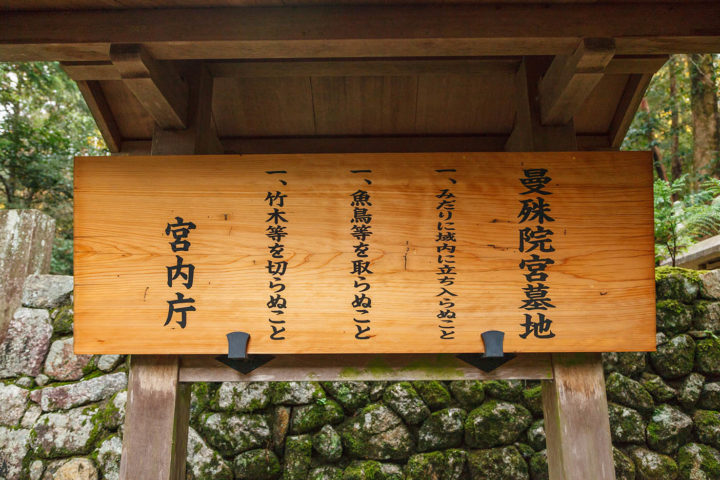 曼殊院宮墓地
一、みだりに域内に立ち入らぬこと
一、魚鳥等を取らぬこと
一、竹木等を切らぬこと
宮内庁